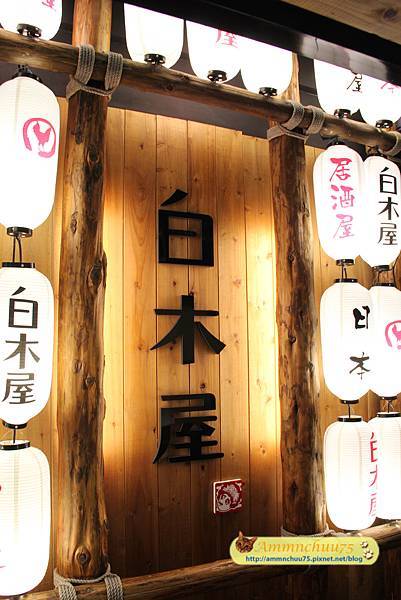 屋
居酒屋
白木屋
白木屋
白木屋
日本
白木屋
Ammnchuu75
http://ammnchuu75.pixnet.net/blog